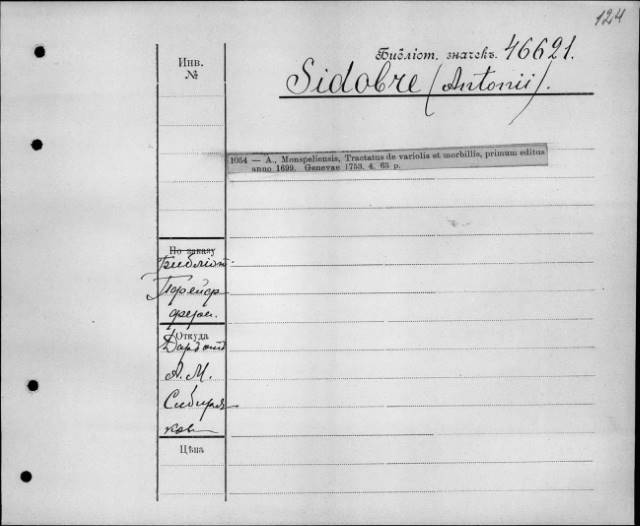 124
Инв.
№
Библіот. значекъ. 46621.
Sidobre (Antonii).
1054 — A., Monspeliensis, Tractatus de variolis et morbillis, primum editus
anno 1699. Genevae 1753. 4. 63 p.
По заказу
Библіот.
Откуда
А. М.
Сибиря
ков
Цѣна